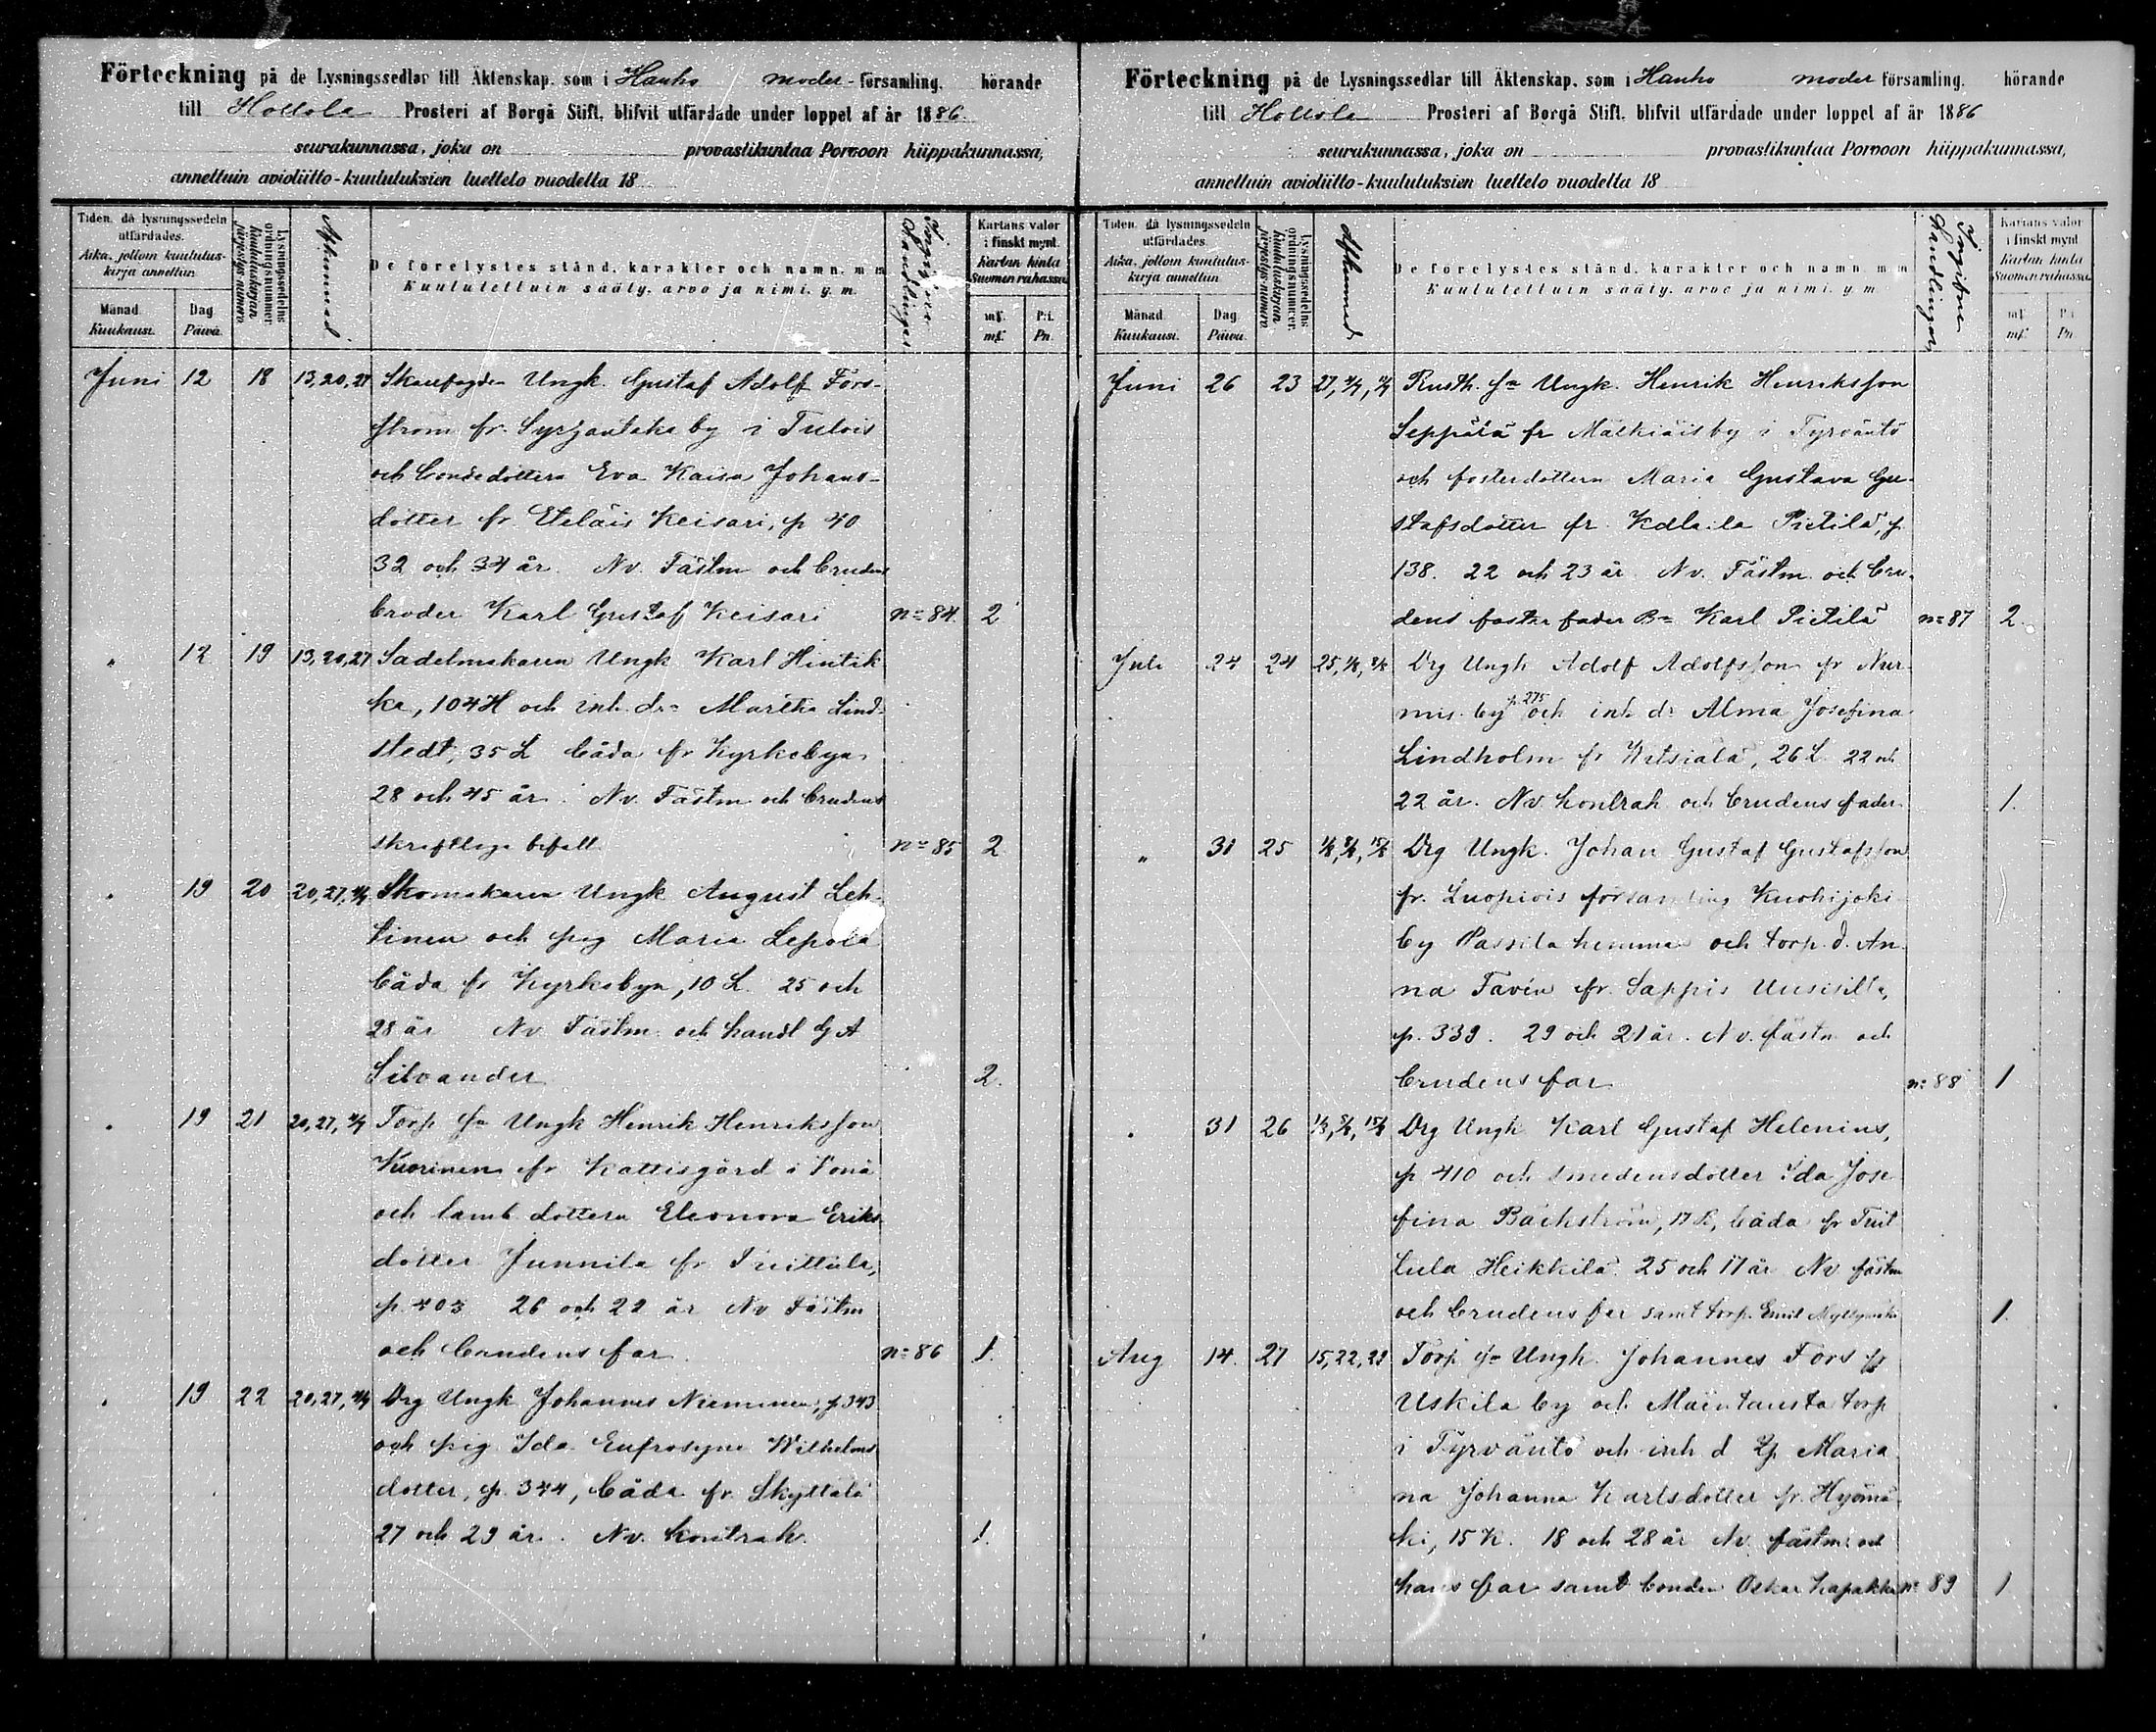 Förteckning på de Lysningssedlar till Äktenskap, som i Hauho moder-församling, hörande
till Hollola Prosteri af Borgå Stift, blifvit utfärdade under loppet af år 1886
seurakunnassa, joka on provastikuntaa Porvoon hiippakunnassa,
annettuin avioliitto-kuulutuksien luettelo vuodelta 18
Tiden, då lysningssedeln utfärdades.
Aika, jolloin kuulutus-kirja annettiin
Månad Kuukausi.
Dag Päivä.
Lysningssedelns ordningsnummer
Kuulutuskirjan järjestys-numero
Afkunnad
De förelystes stånd, karakter och namn, m m
Kuulutettuin sääty, arvo ja nimi, y. m.
Ingifna Handlingar
Kartans valör i finskt mynt.
Kartan hinta Suomen rahassa
mf. mf.
P:i. Pn.
Juni 12 18 13, 20, 27 Skaufogden Ungk. Gustaf Adolf Fors-
ström fr. Syrjäntaka by i Tulois
och bondedottern Eva Kaisa Johans-
dotter fr Eteläis Keisari, p 40
32 och 34 år. Nv. Fästm och brudens
broder Karl Gustaf Keisari no 84. 2
" 12 19 13, 20, 27 Sadelmakaren Ungk Karl Hintik
ka, 104 H och inh. dr Martha Lind-
stedt, 35 L båda fr Kyrkobyn
28 och 45 år. Nv. Fästm och brudens
skriftliga bifall no 85 2
" 19 20 20, 27, 4/7 Skomakaren Ungk August Leh-
tinen och pig Maria Lepola
båda fr Kyrkobyn, 10 L. 25 och
28 år Nv Fästm. och handl G A
Silvander 2.
" 19 21 20, 27, 4/7 Torp sn Ungk Henrik Henriksson
Kuorinen fr Kattisgård i
och lamb. dottern Eleonora Eriks
dotter Junnila fr Tuittula,
p. 403 26 och 22 år Nv Fästm
och brudens far. no 86 1.
" 19 22 20, 27, 4/7 Drg Ungk Johannes Nieminen, p 343
och pig Ida Eufrosyne Wilhelms
dotter, p. 344, båda fr. Skyttälä
27 och 29 år. Nv. kontrah. 1.
Förteckning på de Lysningssedlar till Äktenskap, som i Hauho moder församling, hörande
till Hollola Prosteri af Borgå Stift, blifvit utfärdade under loppet af år 1886
seurakunnassa, joka on provastikuntaa Porvoon hiippakunnassa,
annettuin avioliitto-kuulutuksien luettelo vuodelta 18
Tiden, då lysningssedeln utfärdades.
Aika, jolloin kuulutus-kirja annettiin
Månad. Kuukausi.
Dag. Päivä.
Lysningssedelns ordningsnummer.
Kuulutuskirjan järjestys-numero
Afkunnad
De förelystes stånd, karakter och namn, m m
Kuulutettuin sääty, arvo ja nimi, y. m.
Ingifne Handlingar
Kartans valör i finskt mynt
Kartan hinta Suomen rahassa
mf. mf.
P:i Pn.
Juni 26 23 27, 4/7, 11/7 Rusth. sn Ungk. Henrik Henriksson
Seppälä fr Mälkiäis by i Tyrväntö
och fosterdottern Maria Gustava Gu-
stafsdotter fr. Pietilä, p.
138. 22 och 23 år. Nv. Fästm. och bru-
dens foster fader Bn Karl Pietilä no 87 2.
Juli 24 24 25, 1/8, 8/8 Drg Ungk Adolf Adolfsson fr Nur-
mis by p 275 och inh dr Alma Josefina
Lindholm fr Kitsiälä, 26 L. 22 och
22 år. Nv. kontrah och brudens fader. 1.
" 31 25 1/8, 8/8, 15/8 Drg Ungk. Johan Gustaf Gustafsson
fr. Luopiois församling Kuohijoki
by Passila hemman och torp. d. An-
na Tavén fr. Sappis Uusisilta,
p. 339. 29 och 21 år. Nv. fästm och
brudens far no 88 1
" 31 26 1/8, 8/8, 15/8 Drg Ungk Karl Gustaf Helenius,
p 410 och smedensdotter Ida Jose
fina Bäckström, 17 L, båda fr Tuit
tula Heikkilä. 25 och 17 år Nv fästm
och brudens far samt torp. Emil 1.
Aug 14. 27 15, 22, 29 Torp sn Ungk. Johannes Fors fr
Uskila by och Mäintausta torp
i Tyrväntö och inh d Maria
na Johanna Karlsdotter fr. Hyömä
ki, 15 K. 18 och 28 år Nv. fästm: och
hans far samt bonden Oskar Kapakka no 89 1